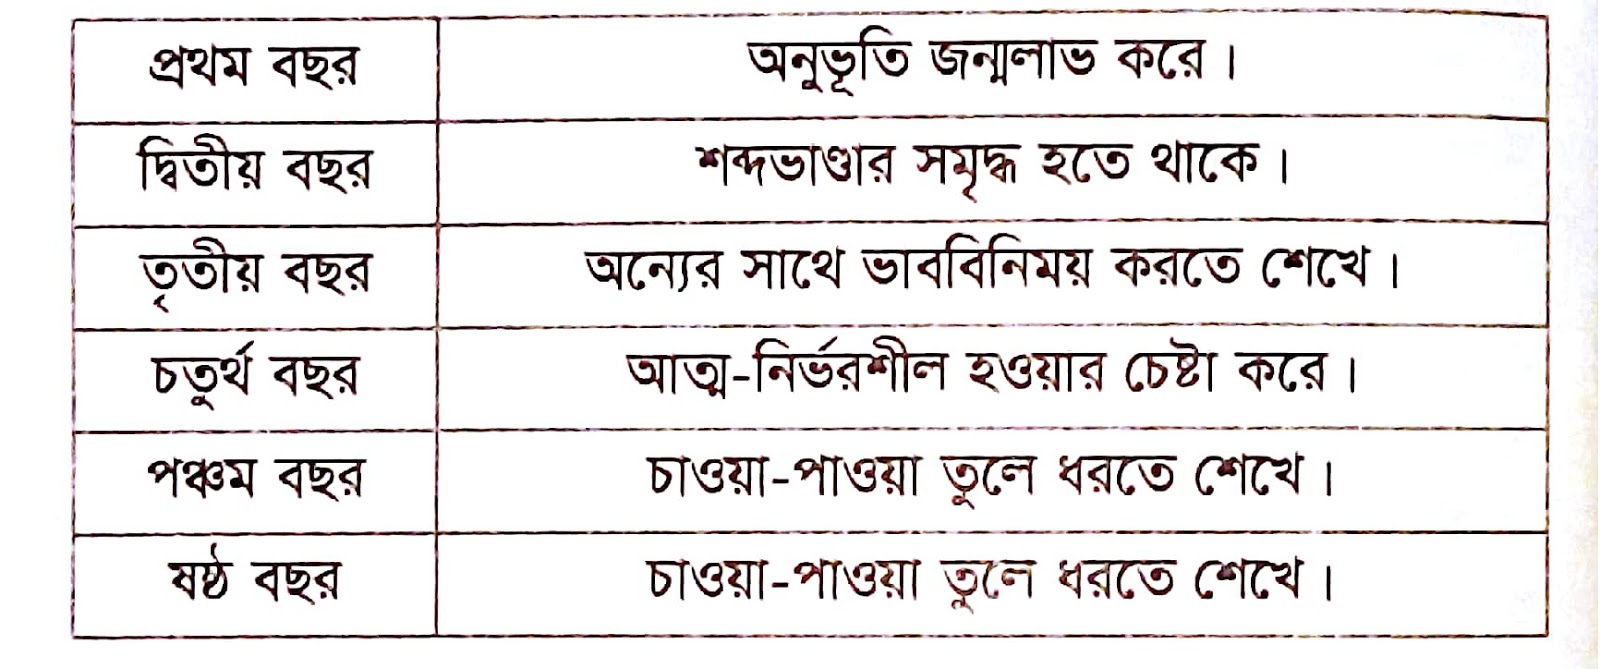 প্রথম বছর অনুভূতি জন্মলাভ করে।
দ্বিতীয় বছর শব্দভাণ্ডার সমৃদ্ধ হতে থাকে।
তৃতীয় বছর অন্যের সাথে ভাববিনিময় করতে শেখে।
চতুর্থ বছর আত্ম-নির্ভরশীল হওয়ার চেষ্টা করে।
পঞ্চম বছর চাওয়া-পাওয়া তুলে ধরতে শেখে।
ষষ্ঠ বছর চাওয়া-পাওয়া তুলে ধরতে শেখে।